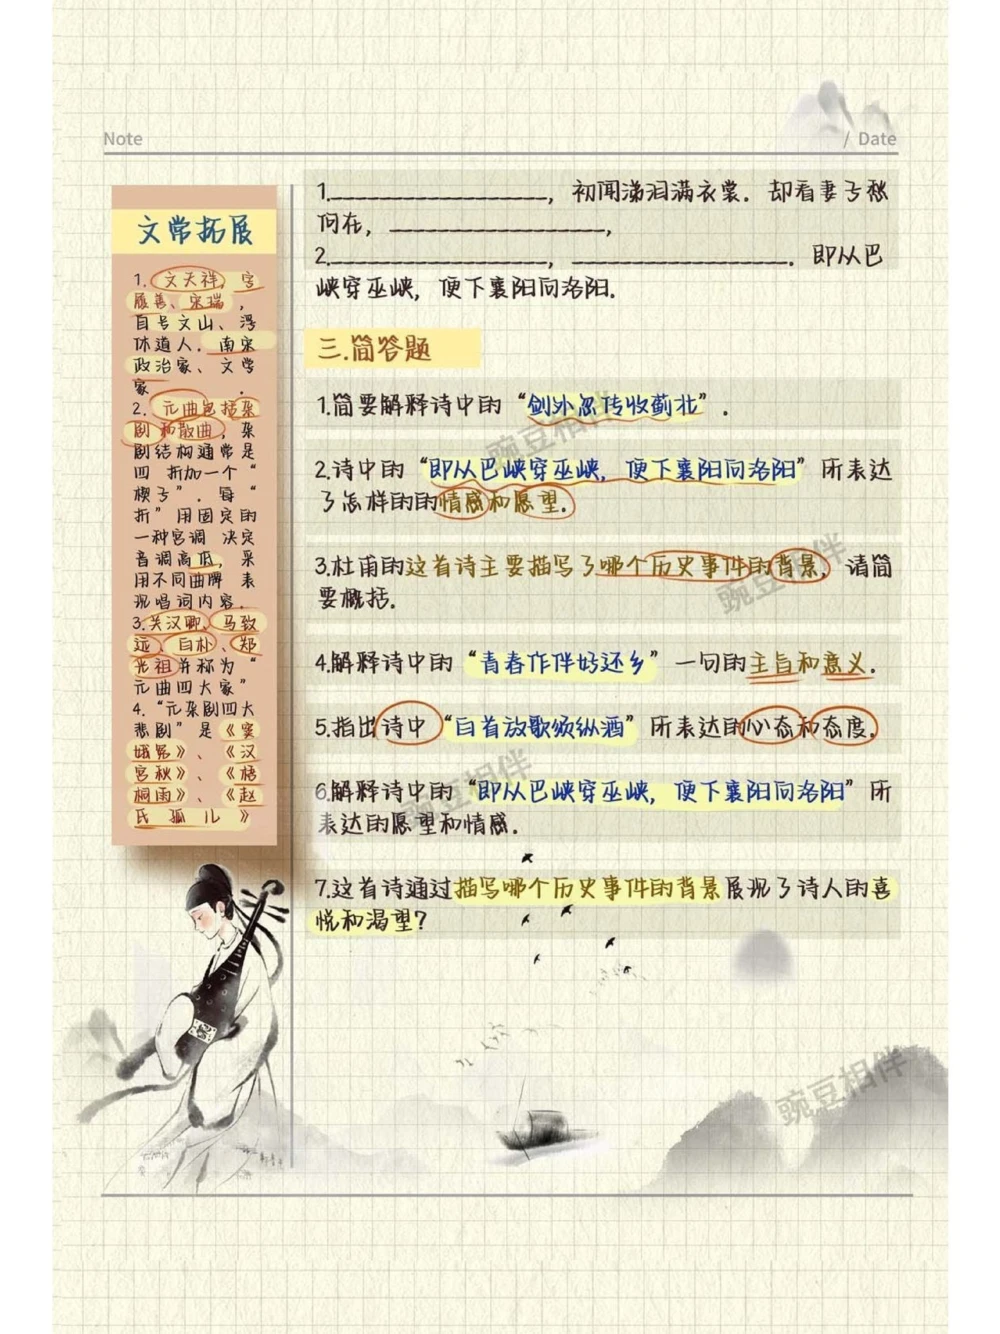 Note
/ Date
文常拓展
1. 文天祥, 字
履善、宋瑞,
自号文山、浮
休道人. 南宋
政治家、文学
家.
2. 元曲包括杂
剧和散曲, 杂
剧结构通常是
四 折加一个 “
楔子”. 每“
折”用固定的
一种宫调 决定
音调高低, 采
用不同曲牌 表
现唱词内容.
3.关汉卿、马致
远、白朴、郑
光祖并称为 “
元曲四大家”
4. “元杂剧四大
悲剧” 是《窦
娥冤》、《汉
宫秋》、《梧
桐雨》、《赵
氏孤儿》
1.____________________, 初闻涕泪满衣裳. 却看妻子愁
何在, ____________________,
2.____________________, ____________________. 即从巴
峡穿巫峡, 便下襄阳向洛阳.
三.简答题
1.简要解释诗中的 “剑外忽传收蓟北”.
2.诗中的 “即从巴峡穿巫峡, 便下襄阳向洛阳” 所表达
了怎样的的情感和愿望.
3.杜甫的这首诗主要描写了哪个历史事件的背景, 请简
要概括.
4.解释诗中的 “青春作伴好还乡” 一句的主旨和意义.
5.指出诗中 “白首放歌须纵酒” 所表达的心态和态度.
6.解释诗中的 “即从巴峡穿巫峡, 便下襄阳向洛阳” 所
表达的愿望和情感.
7.这首诗通过描写哪个历史事件的背景展现了诗人的喜
悦和渴望?
豌豆相伴
豌豆相伴
豌豆相伴
豌豆相伴